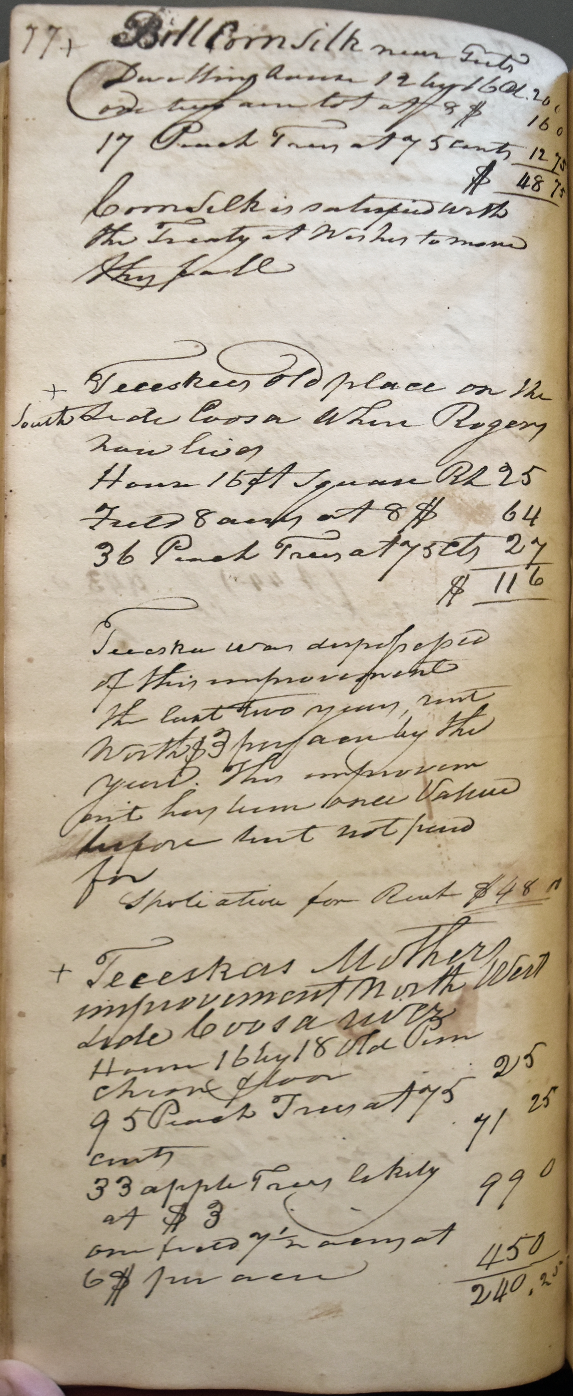 77 + Bill Corn Silk near Feets
Dwelling house 12 by 16 Old. 20 0
one half acre lot at 8 $ 16 0
17 Peach Trees at 75 cents 12 75
$ 48 75
Corn Silk is satisfied with
the Treaty & Wishes to move
this fall
+ Teeeskees Old place on the
South Side Coosa Where Rogers
now lives
House 16 ft Square Rh 25
Field 8 acres at 8 $ 64
36 Peach Trees at 75 cts 27
$ 116
Teeeska was dispossessed
of this improvement
the last two years, rent
Worth $3 per acre by the
year. This improvem
ent has been once Valued
before but not paid
for
Spoliation for Rent $48 00
+ Teeeskas Mothers
improvement North West
side Coosa river
House 16 by 18 Old Pun
cheon floor 25
95 Peach Trees at 75
cents 71 25
33 apple Trees likely
at $3 99 0
one field 7 1/2 acres at
6 $ per acre 45 0
240.25